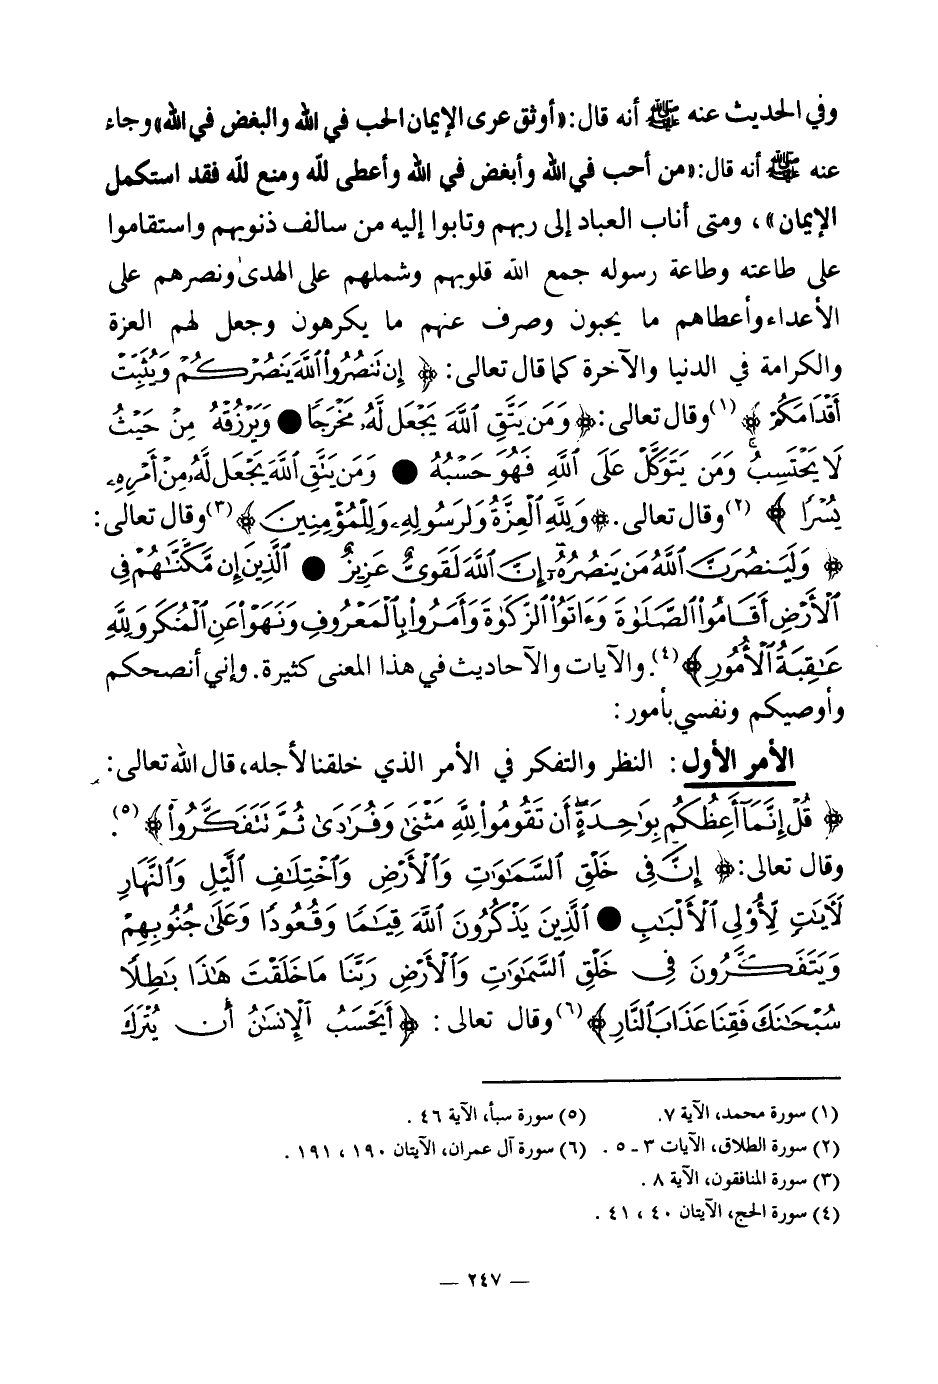 وفي الحديث عنه ﷺ أنه قال: «أوثق عرى الإيمان الحب في الله والبغض في الله» وجاء
عنه ﷺ أنه قال: «من أحب في الله وأبغض في الله وأعطى لله ومنع لله فقد استكمل
الإيمان» ، ومتى أناب العباد إلى ربهم وتابوا إليه من سالف ذنوبهم واستقاموا
على طاعته وطاعة رسوله جمع الله قلوبهم وشملهم على الهدى ونصرهم على
الأعداء وأعطاهم ما يحبون وصرف عنهم ما يكرهون وجعل لهم العزة
والكرامة في الدنيا والآخرة كما قال تعالى: ﴿ إِن تَنصُرُوا۟ ٱللَّهَ يَنصُرْكُمْ وَيُثَبِّتْ
أَقْدَامَكُمْ ﴾ (١) وقال تعالى: ﴿ وَمَن يَتَّقِ ٱللَّهَ يَجْعَل لَّهُۥ مَخْرَجًا ● وَيَرْزُقْهُ مِنْ حَيْثُ
لَا يَحْتَسِبُ ۚ وَمَن يَتَوَكَّلْ عَلَى ٱللَّهِ فَهُوَ حَسْبُهُ ● وَمَن يَتَّقِ ٱللَّهَ يَجْعَل لَّهُۥ مِنْ أَمْرِهِۦ
يُسْرًا ﴾ (٢) وقال تعالى. ﴿ وَلِلَّهِ ٱلْعِزَّةُ وَلِرَسُولِهِۦ وَلِلْمُؤْمِنِينَ ﴾ (٣) وقال تعالى:
﴿ وَلَيَنصُرَنَّ ٱللَّهُ مَن يَنصُرُهُۥٓ إِنَّ ٱللَّهَ لَقَوِىٌّ عَزِيزٌ ● ٱلَّذِينَ إِن مَّكَّنَّٰهُمْ فِى
ٱلْأَرْضِ أَقَامُوا۟ ٱلصَّلَوٰةَ وَءَاتَوُا۟ ٱلزَّكَوٰةَ وَأَمَرُوا۟ بِٱلْمَعْرُوفِ وَنَهَوْا۟ عَنِ ٱلْمُنكَرِ وَلِلَّهِ
عَٰقِبَةُ ٱلْأُمُورِ ﴾ (٤). والآيات والآحاديث في هذا المعنى كثيرة. وإني أنصحكم
وأوصيكم ونفسي بأمور:
الأمر الأول: النظر والتفكر في الأمر الذي خلقنا لأجله، قال الله تعالى:
﴿ قُلْ إِنَّمَآ أَعِظُكُم بِوَٰحِدَةٍ ۖ أَن تَقُومُوا۟ لِلَّهِ مَثْنَىٰ وَفُرَٰدَىٰ ثُمَّ تَتَفَكَّرُوا۟ ﴾ (٥).
وقال تعالى: ﴿ إِنَّ فِى خَلْقِ ٱلسَّمَٰوَٰتِ وَٱلْأَرْضِ وَٱخْتِلَٰفِ ٱلَّيْلِ وَٱلنَّهَارِ
لَءَايَٰتٍ لِّأُو۟لِى ٱلْأَلْبَٰبِ ● ٱلَّذِينَ يَذْكُرُونَ ٱللَّهَ قِيَٰمًا وَقُعُودًا وَعَلَىٰ جُنُوبِهِمْ
وَيَتَفَكَّرُونَ فِى خَلْقِ ٱلسَّمَٰوَٰتِ وَٱلْأَرْضِ رَبَّنَا مَا خَلَقْتَ هَٰذَا بَٰطِلًا
سُبْحَٰنَكَ فَقِنَا عَذَابَ ٱلنَّارِ ﴾ (٦) وقال تعالى: ﴿ أَيَحْسَبُ ٱلْإِنسَٰنُ أَن يُتْرَكَ
(١) سورة محمد، الآية ٧. (٥) سورة سبأ، الآية ٤٦ .
(٢) سورة الطلاق، الآيات ٣ ـ ٥ . (٦) سورة آل عمران، الآيتان ١٩٠ ، ١٩١ .
(٣) سورة المنافقون، الآية ٨ .
(٤) سورة الحج، الآيتان ٤٠ ، ٤١ .
— ٢٤٧ —